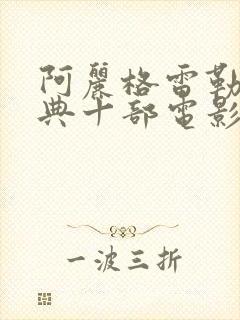 阿麗格雷勒
典十部電影
一波三折